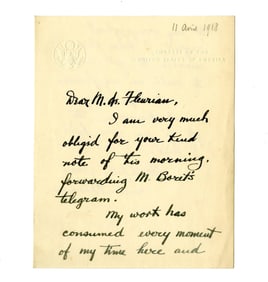 11 Avril 1918
UNITED STATES OF AMERICA
Dear M. de Fleuriau,
I am very much
obliged for your kind
note of this morning.
forwarding M. Borit's
telegram.
My work has
consumed every moment
of my time here and